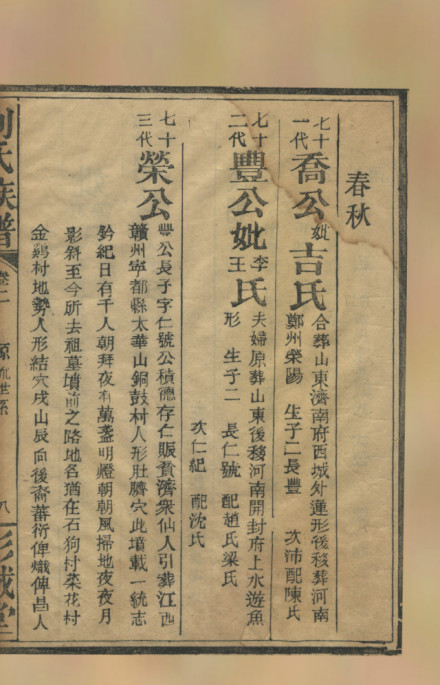 春秋
七十一代喬公妣吉氏
合葬山東濟南府西城外蓮形後移葬河南
鄭州榮陽 生子二長豐 次沛配陳氏
七十二代豐公妣李王氏
夫婦原葬山東後移河南開封府上水遊魚
形 生子二 長仁號 配趙氏梁氏
次仁紀 配沈氏
七十三代榮公
豐公長子字仁號公積德存仁賑貧濟衆仙人引葬江西
贛州寧都縣太華山銅鼓村人形肚臍穴此墳載一統志
鈐紀日有千人朝拜夜有萬盞明燈朝朝風掃地夜夜月
影斜至今所去祖墓墳前之路地名猶在石狗村菜花村
金鷄村地勢人形結穴戌山辰向後裔蕃衍俾熾俾昌人
劉氏族譜 卷二 源流世系 八 彭城堂